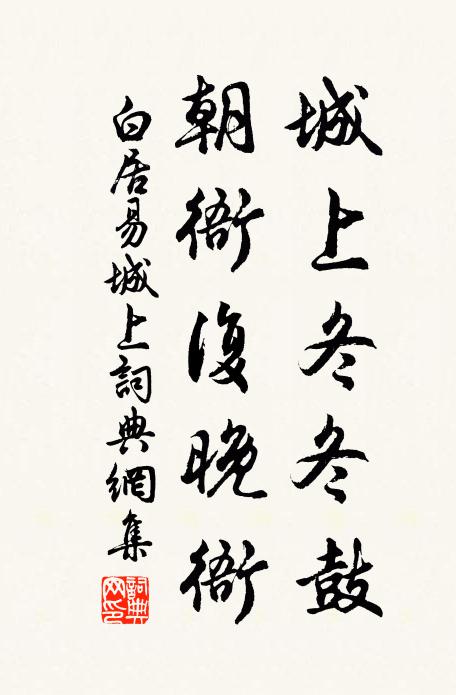 城上冬冬鼓
朝衙復晚衙
白居易城上詞典網集
詞典網印